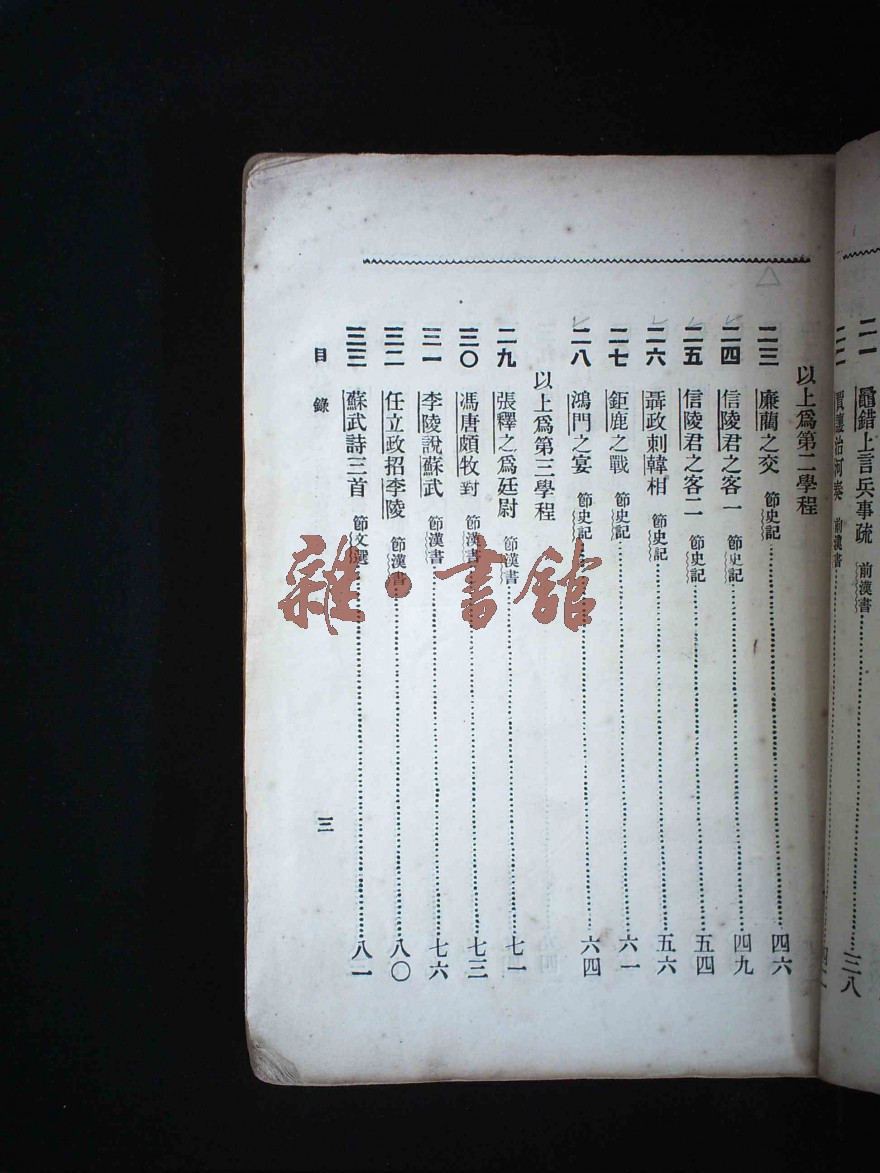 二一 鼂錯上言兵事疏 前漢書 三八
二二 賈讓治河奏 前漢書
以上爲第二學程
二三 廉藺之交 節史記 四六
二四 信陵君之客一 節史記 四九
二五 信陵君之客二 節史記 五四
二六 聶政刺韓相 節史記 五六
二七 鉅鹿之戰 節史記 六一
二八 鴻門之宴 節史記 六四
以上爲第三學程
二九 張釋之爲廷尉 節漢書 七一
三〇 馮唐頗牧對 節漢書 七三
三一 李陵說蘇武 節漢書 七六
三二 任立政招李陵 節漢書 八〇
三三 蘇武詩三首 節文選 八一
目錄 三
雜·書館